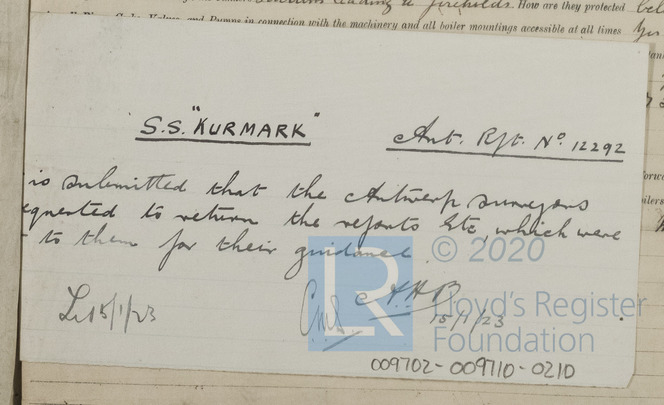 leading to fireholds. How are they protected
Pumps in connection with the machinery and all boiler mountings accessible at all times
S.S. "KURMARK"
Ant. Rpt. No. 12292
is submitted that the Antwerp surveyors
equested to return the reports etc, which were
to them for their guidance.
15/1/23
A.H.B
15/1/23
LR
© 2020
Lloyd's Register
Foundation
009702-009710-0210